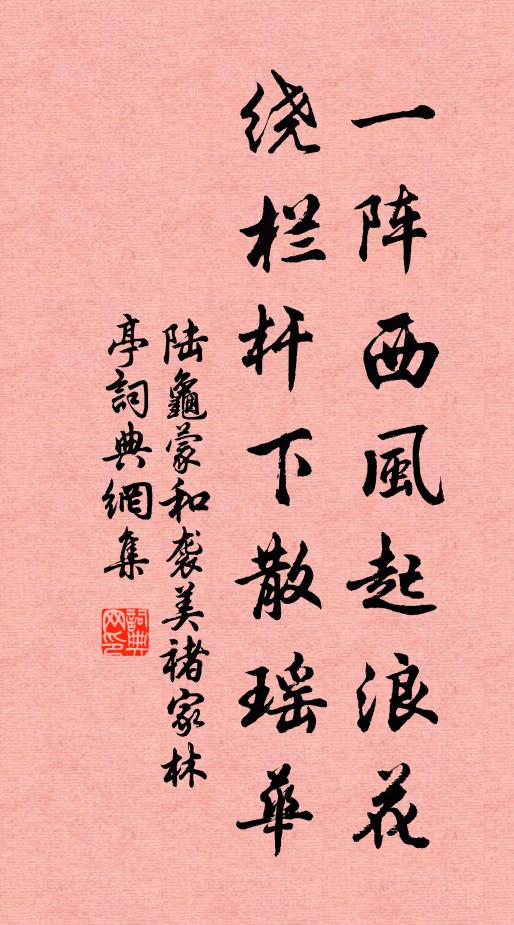 一阵西風起浪花
绕栏杆下散瑶華
陆龜蒙和袭美褚家林
亭詞典網集
詞典网印